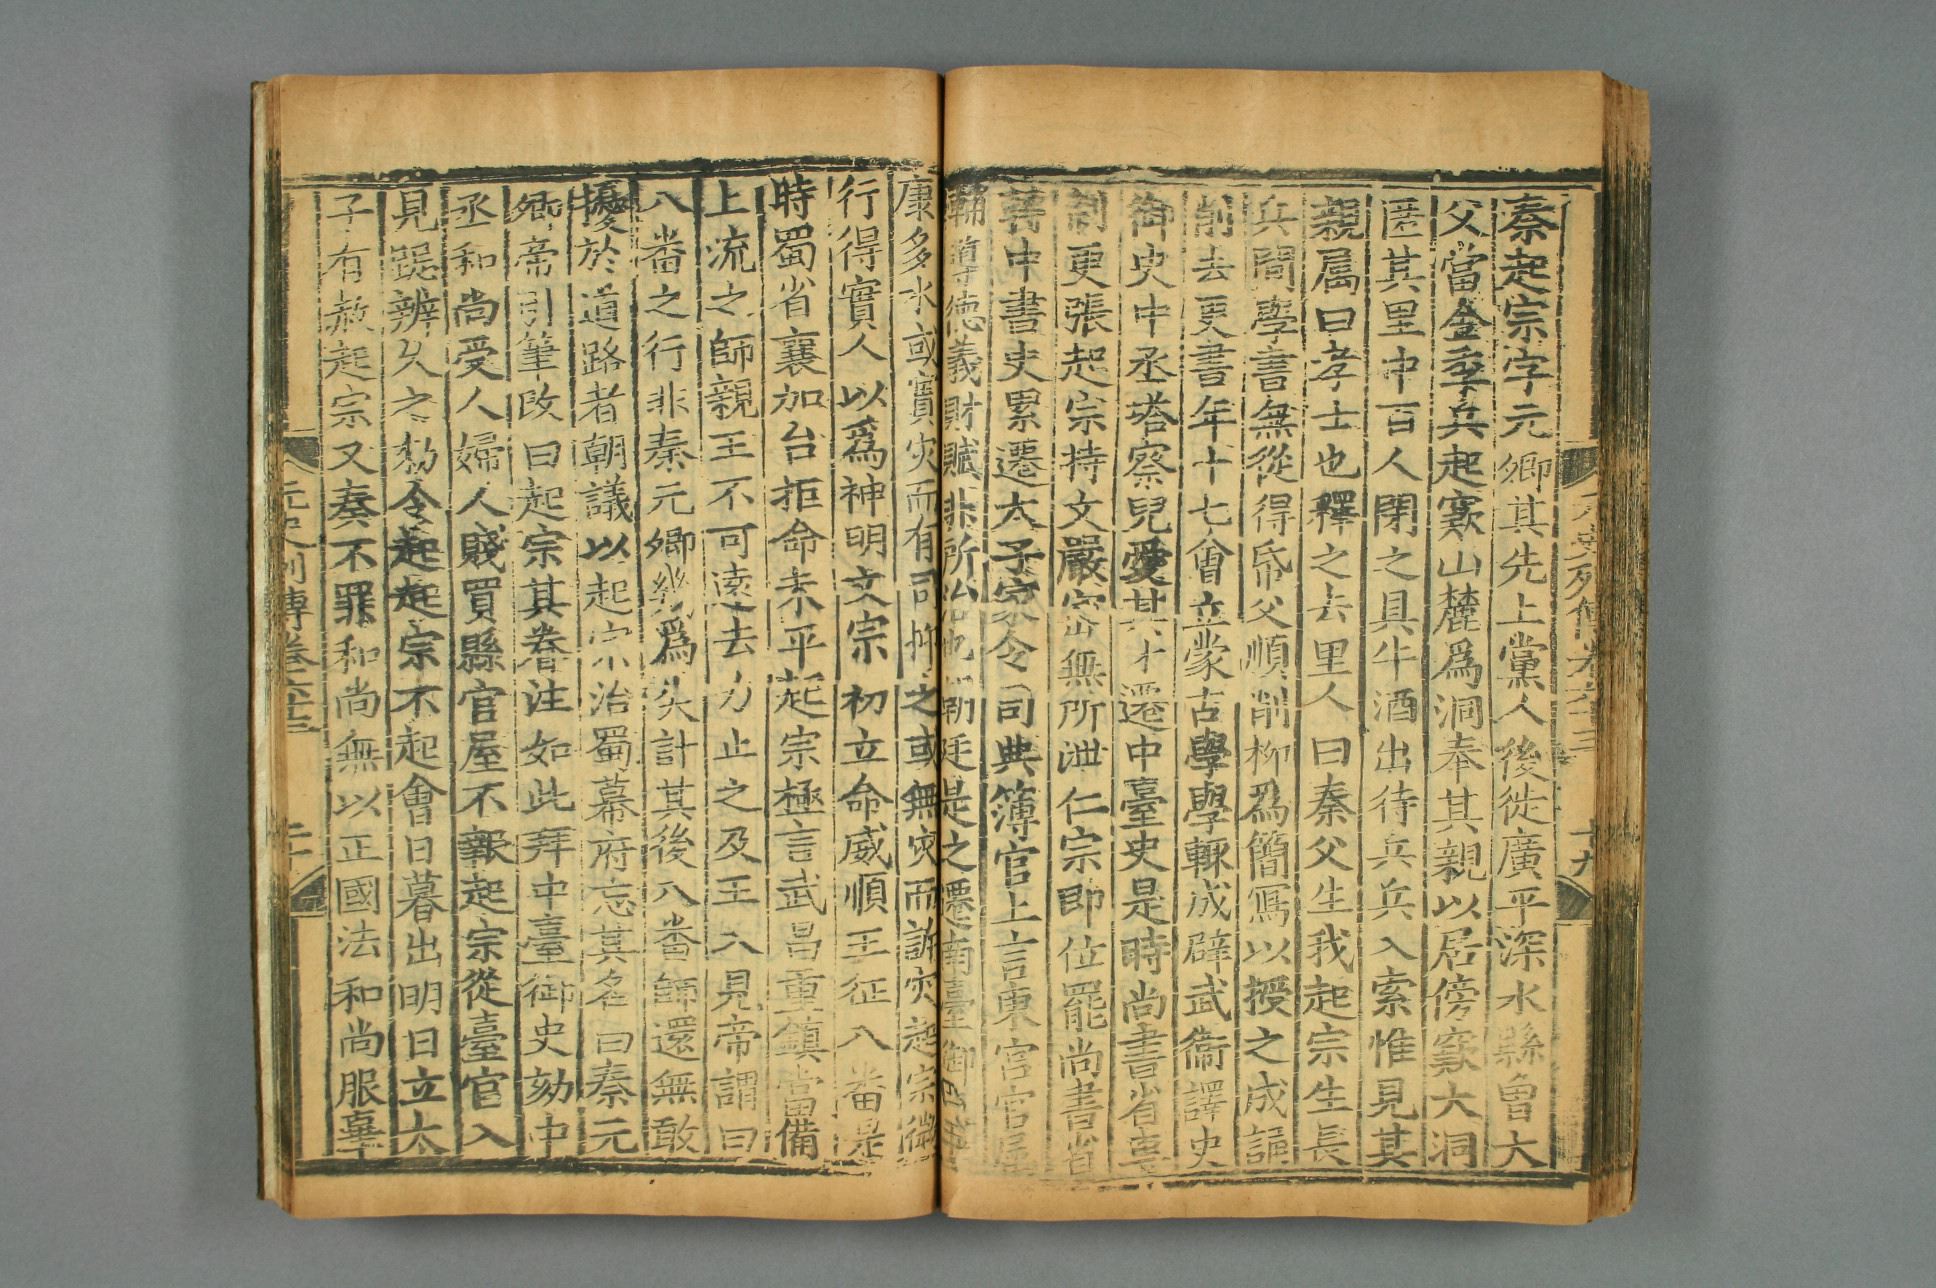 秦起宗字元卿其先上黨人後徙廣平深水縣曾大
父當金季兵起窽山麓爲洞奉其親以居傍窽大洞
匿其里中百人閉之具牛酒出待兵兵入索惟見其
親屬曰孝士也釋之去里人曰秦父生我起宗生長
兵間學書無從得帋父順削柳爲簡寫以授之成誦
削去更書年十七會立蒙古學學輒成辟武衞譯史
御史中丞塔察兒愛其才遷中臺史是時尚書省立
制更張起宗持文嚴密無所泄仁宗即位罷尚書省
轉中書史累遷太子家令司典簿官上言東宮官屬
輔導德義財賦非所治也朝廷是之遷南臺御史
康多水或實灾而有司抑之或無灾而訴灾起宗徵
行得實人以爲神明文宗初立命威順王征八番是
時蜀省襄加台拒命未平起宗極言武昌重鎮當備
上流之師親王不可遠去力止之及王入見帝謂曰
八番之行非秦元卿幾爲失計其後八番師還無敢
擾於道路者朝議以起宗治蜀幕府忘其名曰秦元
卿帝引筆改曰起宗其眷注如此拜中臺御史劾中
丞和尚受人婦人賤買縣官屋不報起宗從臺官入
見跽辨久之勑令起起宗不起會日暮出明日立太
子有赦起宗又奏不罪和尚無以正國法和尚服辜
元史列傳卷六十三
十九
元史列傳卷六十三
二十